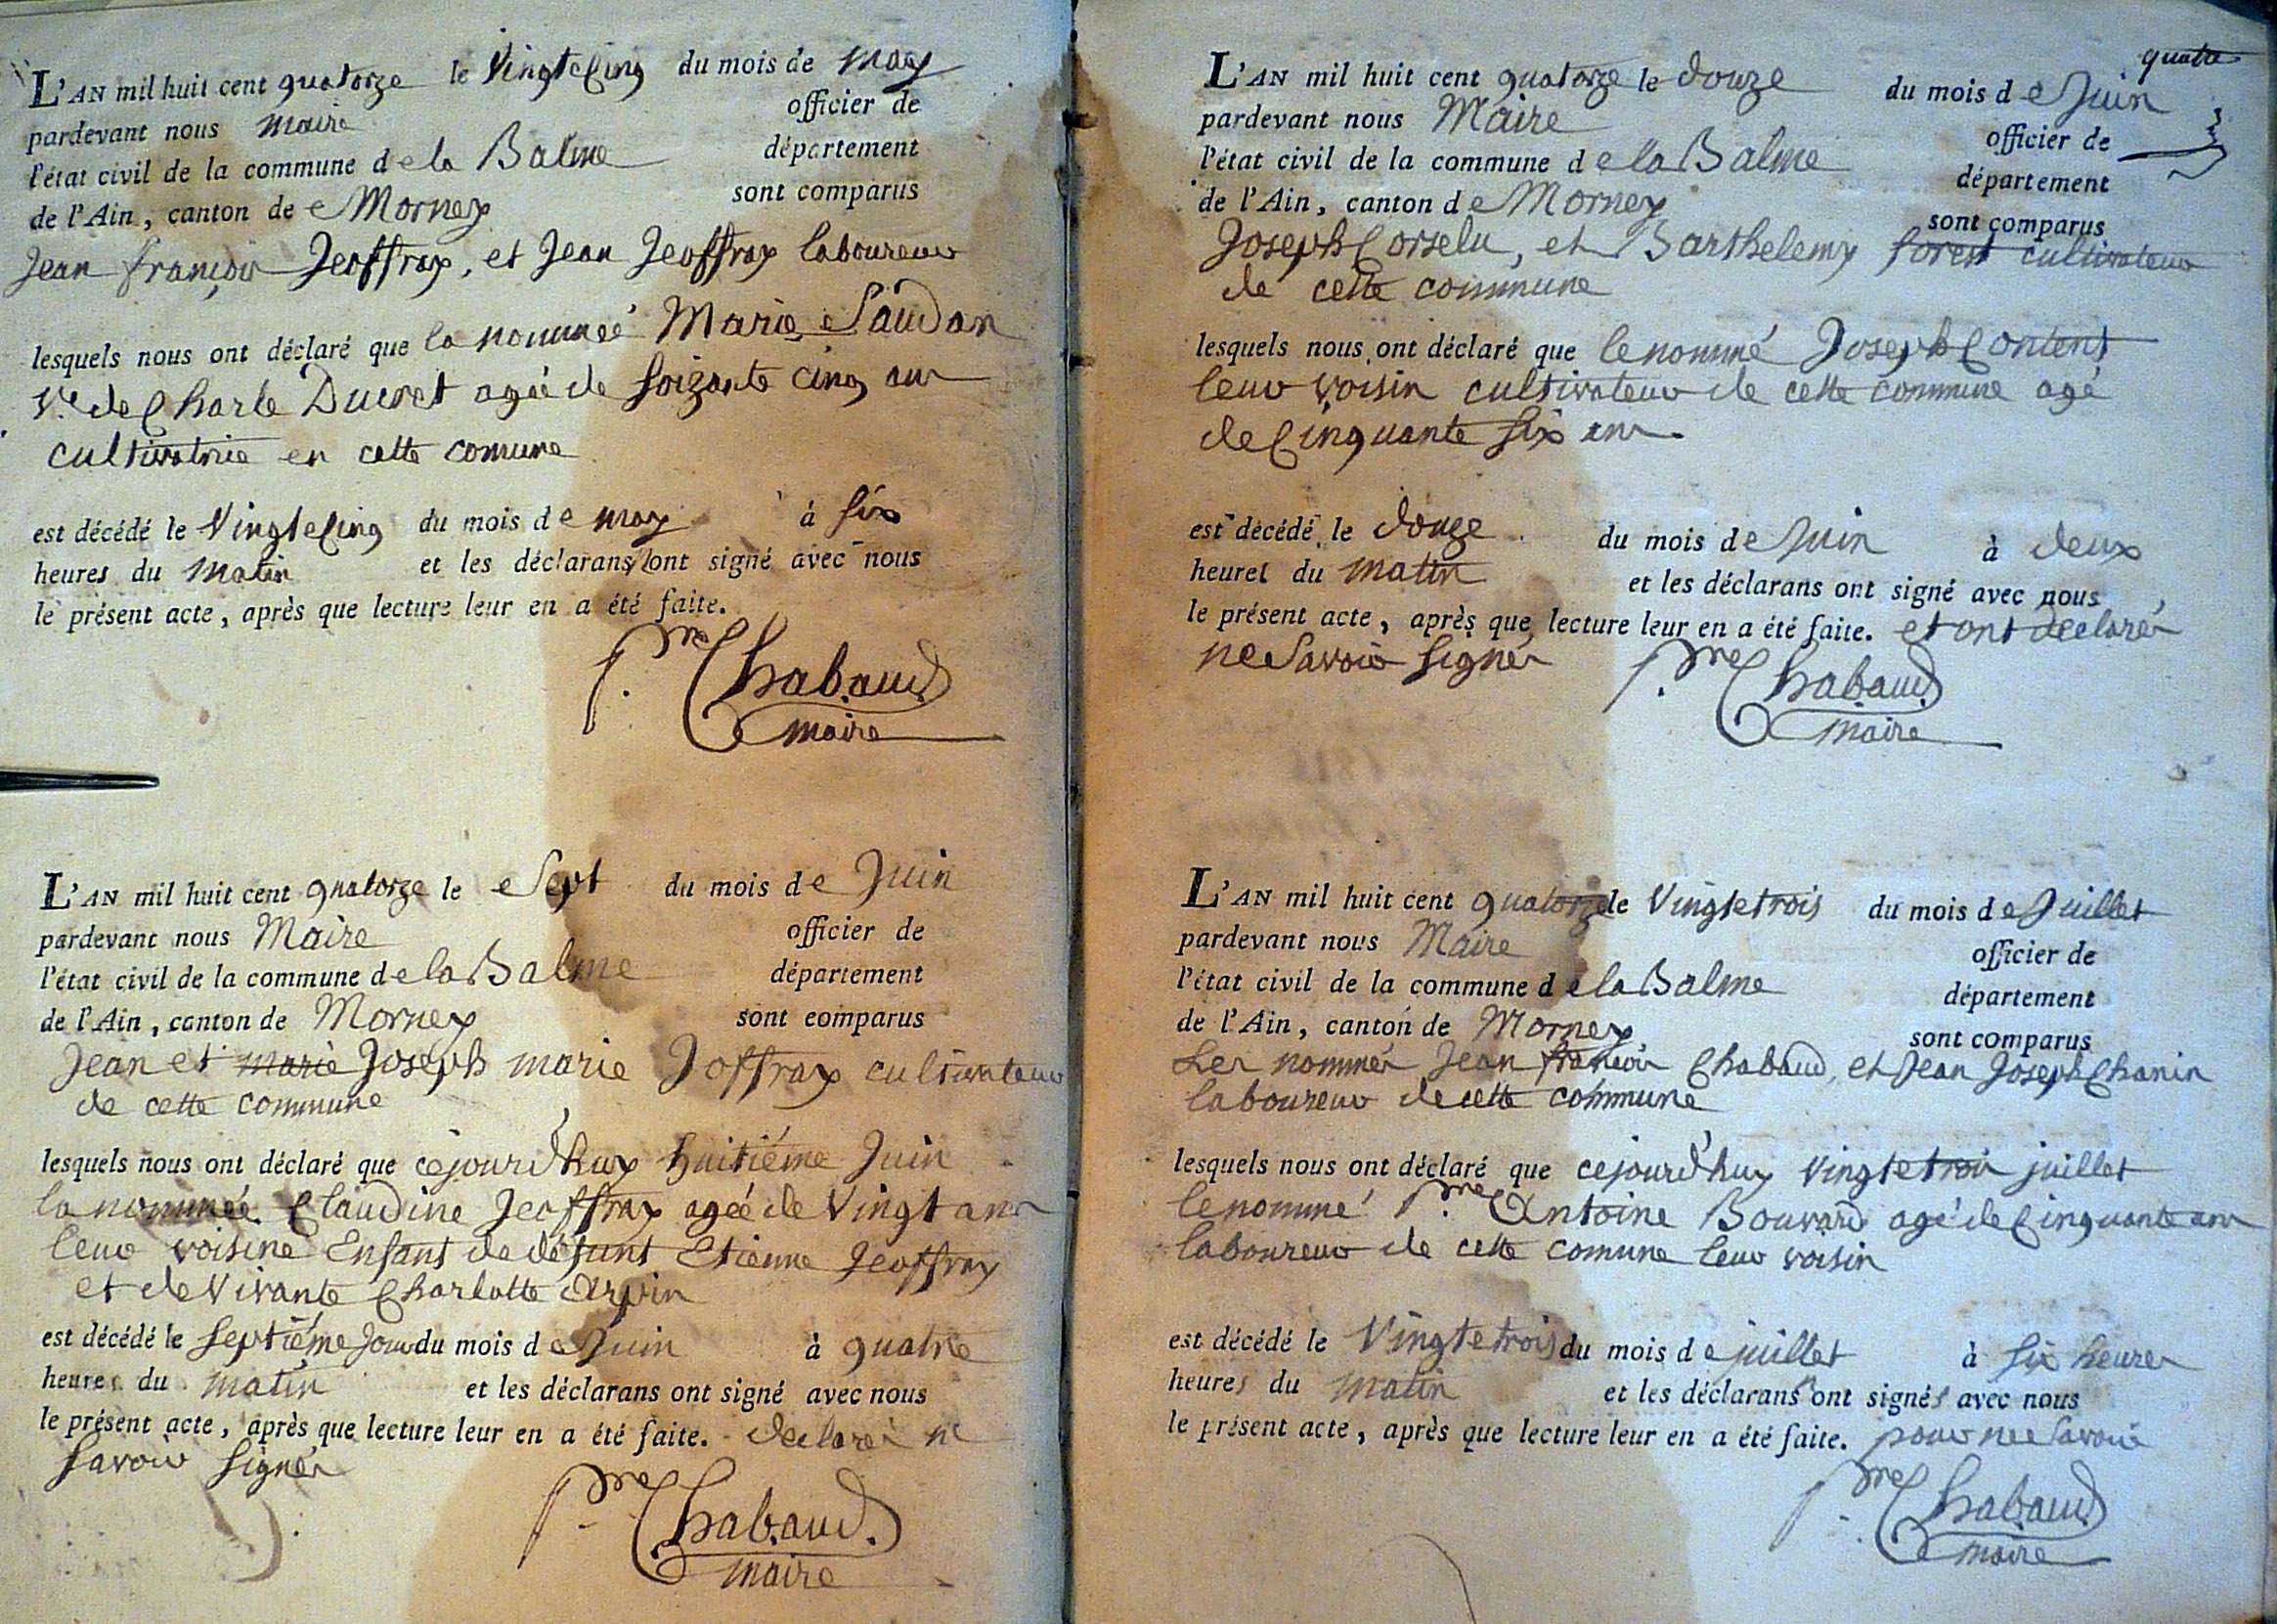 L'AN mil huit cent quatorze le Vingt cinq du mois de may
pardevant nous maire officier de
l'état civil de la commune de la Balme département
de l'Ain, canton de Mornay sont comparus
Jean françois Jeoffray, et Jean Jeoffray laboureur
lesquels nous ont déclaré que la nommeé Marie Saudan
Ve. de Charle Ducret ageé de soizante cinq ans
cultivatrice en cette comune
est décédé le Vingt cinq du mois de may à six
heures du matin et les déclarans ont signé avec nous
le présent acte, après que lecture leur en a été faite.
Pre Chabaud
maire
L'AN mil huit cent quatorze le Sept du mois de Juin
pardevant nous Maire officier de
l'état civil de la commune de la Balme département
de l'Ain, canton de Mornay sont comparus
Jean et marie Joseph marie Joffray cultivateur
de cette commune
lesquels nous ont déclaré que cejourd'huy huitiéme Juin
la nommeé Claudine Jeoffray ageé de Vingt ans
leur voisine Enfant de défunt Etienne Jeoffray
et de Vivante Charlotte Arpin
est décédé le septiéme Jour du mois de Juin à quatre
heures du matin et les déclarans ont signé avec nous
le présent acte, après que lecture leur en a été faite. declarér ne
savoir signér
Pre Chabaud.
maire
quatre
L'AN mil huit cent quatorze le douze du mois de Juin
pardevant nous Maire officier de
l'état civil de la commune de la Balme département
de l'Ain, canton de Mornay sont comparus
Joseph Corselu, et Barthelemy forest cultivateur
de cette commune
lesquels nous ont déclaré que le nommé Joseph Content
leur voisin cultivateur de cette commune agé
de Cinquante six ans.
est décédé le douze du mois de Juin à deux
heures du matin et les déclarans ont signé avec nous
le présent acte, après que lecture leur en a été faite. et ont declarér
ne Savoir signér
Pre Chabaud
maire
L'AN mil huit cent quatorze le Vingt trois du mois de Juillet
pardevant nous Maire officier de
l'état civil de la commune de la Balme département
de l'Ain, canton de Mornay sont comparus
Les nommés Jean françois Chabaud, et Jean Joseph Chanin
laboureur de cette commune
lesquels nous ont déclaré que cejourd'huy Vingt trois juillet
le nommé Pre Antoine Bouvard agé de Cinquante ans
laboureur de cette comune leur voisin
est décédé le Vingt trois du mois de juillet à six heures
heures du matin et les déclarans ont signés avec nous
le présent acte, après que lecture leur en a été faite. pour ne Savoir
Pre Chabaud
maire